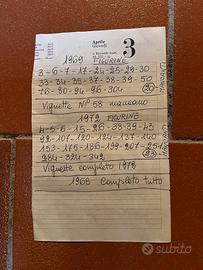 Aprile
Giovedì
3
1969 FIGURINE
3-6-7-17-24-25-29-30
33-34-35-37-38-39-50
76-80-94-96-304 (20) MANCANTI
Vignette N° 58 mancano
1972 FIGURINE
4-5-6-15-26-38-39-43
92-107-120-124-137-140
153-175-186-199-207-25
284-324-342 (23) MANCANTI
Vignette completo 1972
1968 Completo tutto
subito